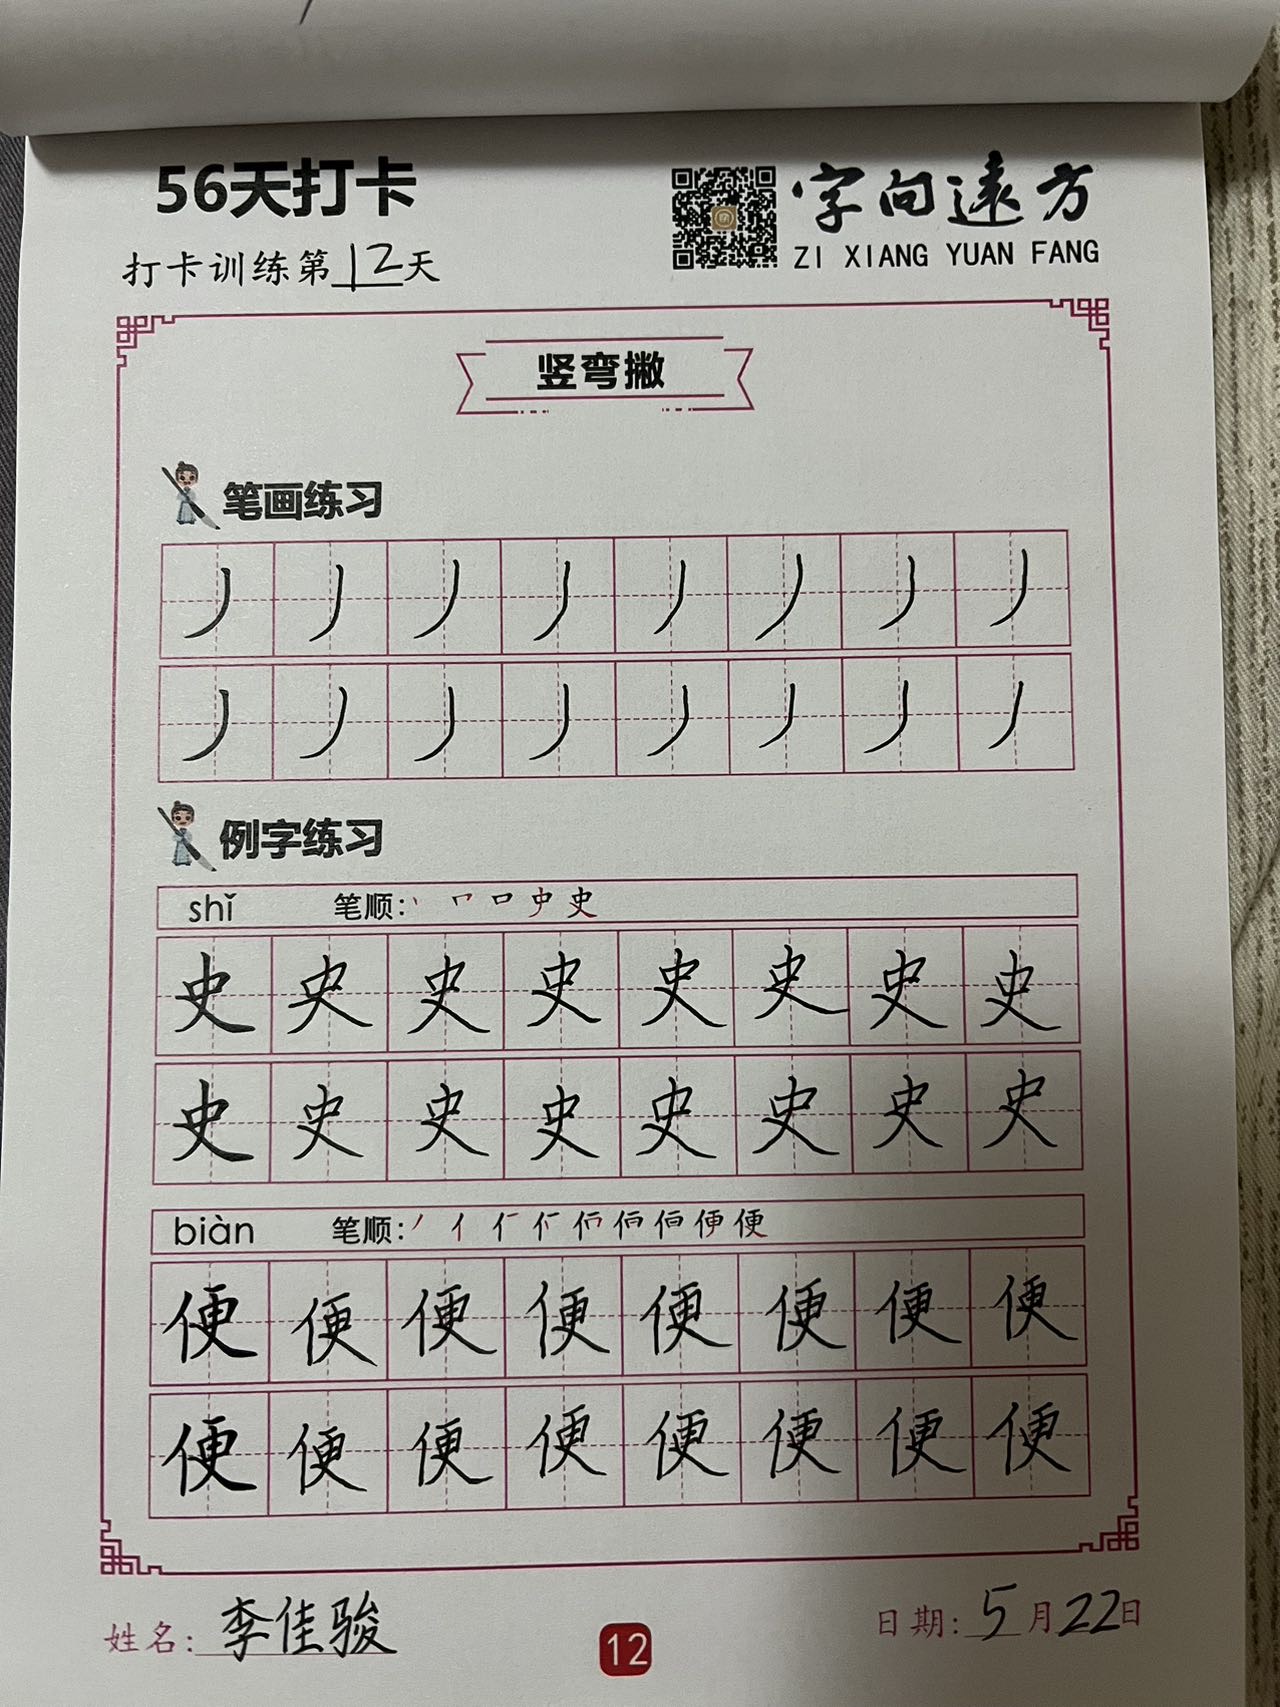 56天打卡
字向远方
ZI XIANG YUAN FANG
打卡训练第12天
竖弯撇
笔画练习
丿丿丿丿丿丿丿丿
丿丿丿丿丿丿丿丿
例字练习
shǐ 笔顺: 史
史史史史史史史史
史史史史史史史史
biàn 笔顺: 丿亻便
便便便便便便便便
便便便便便便便便
姓名: 李佳骏
12
日期: 5月22日